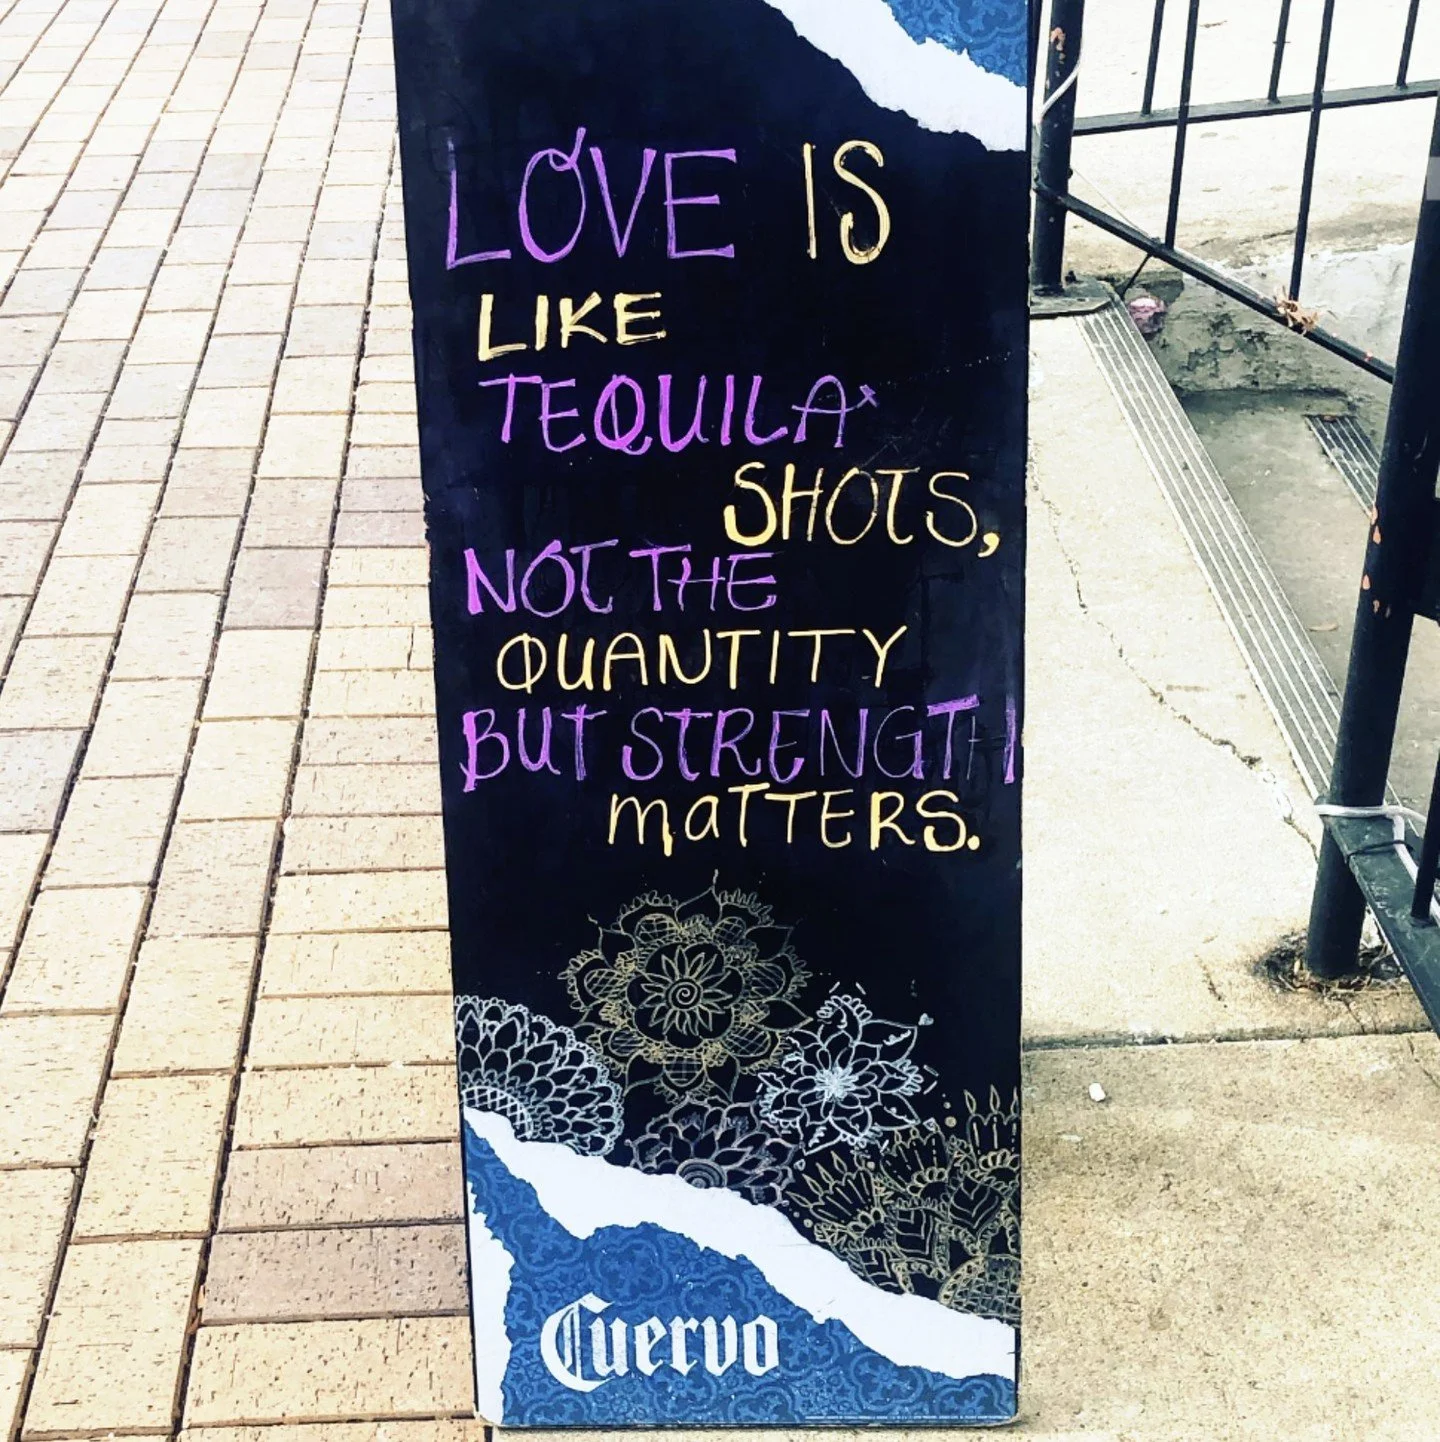 LOVE IS
LIKE
TEQUILA
SHOTS,
NOT THE
QUANTITY
BUT STRENGTH
maTTERS.
Cuervo